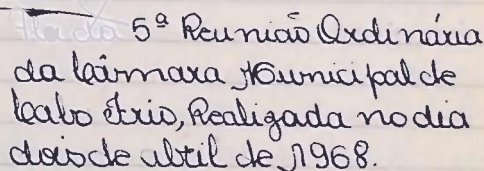 5ª Reunião Ordinária
da Câmara Municipal de
Cabo Frio, Realizada no dia
dois de abril de 1968.